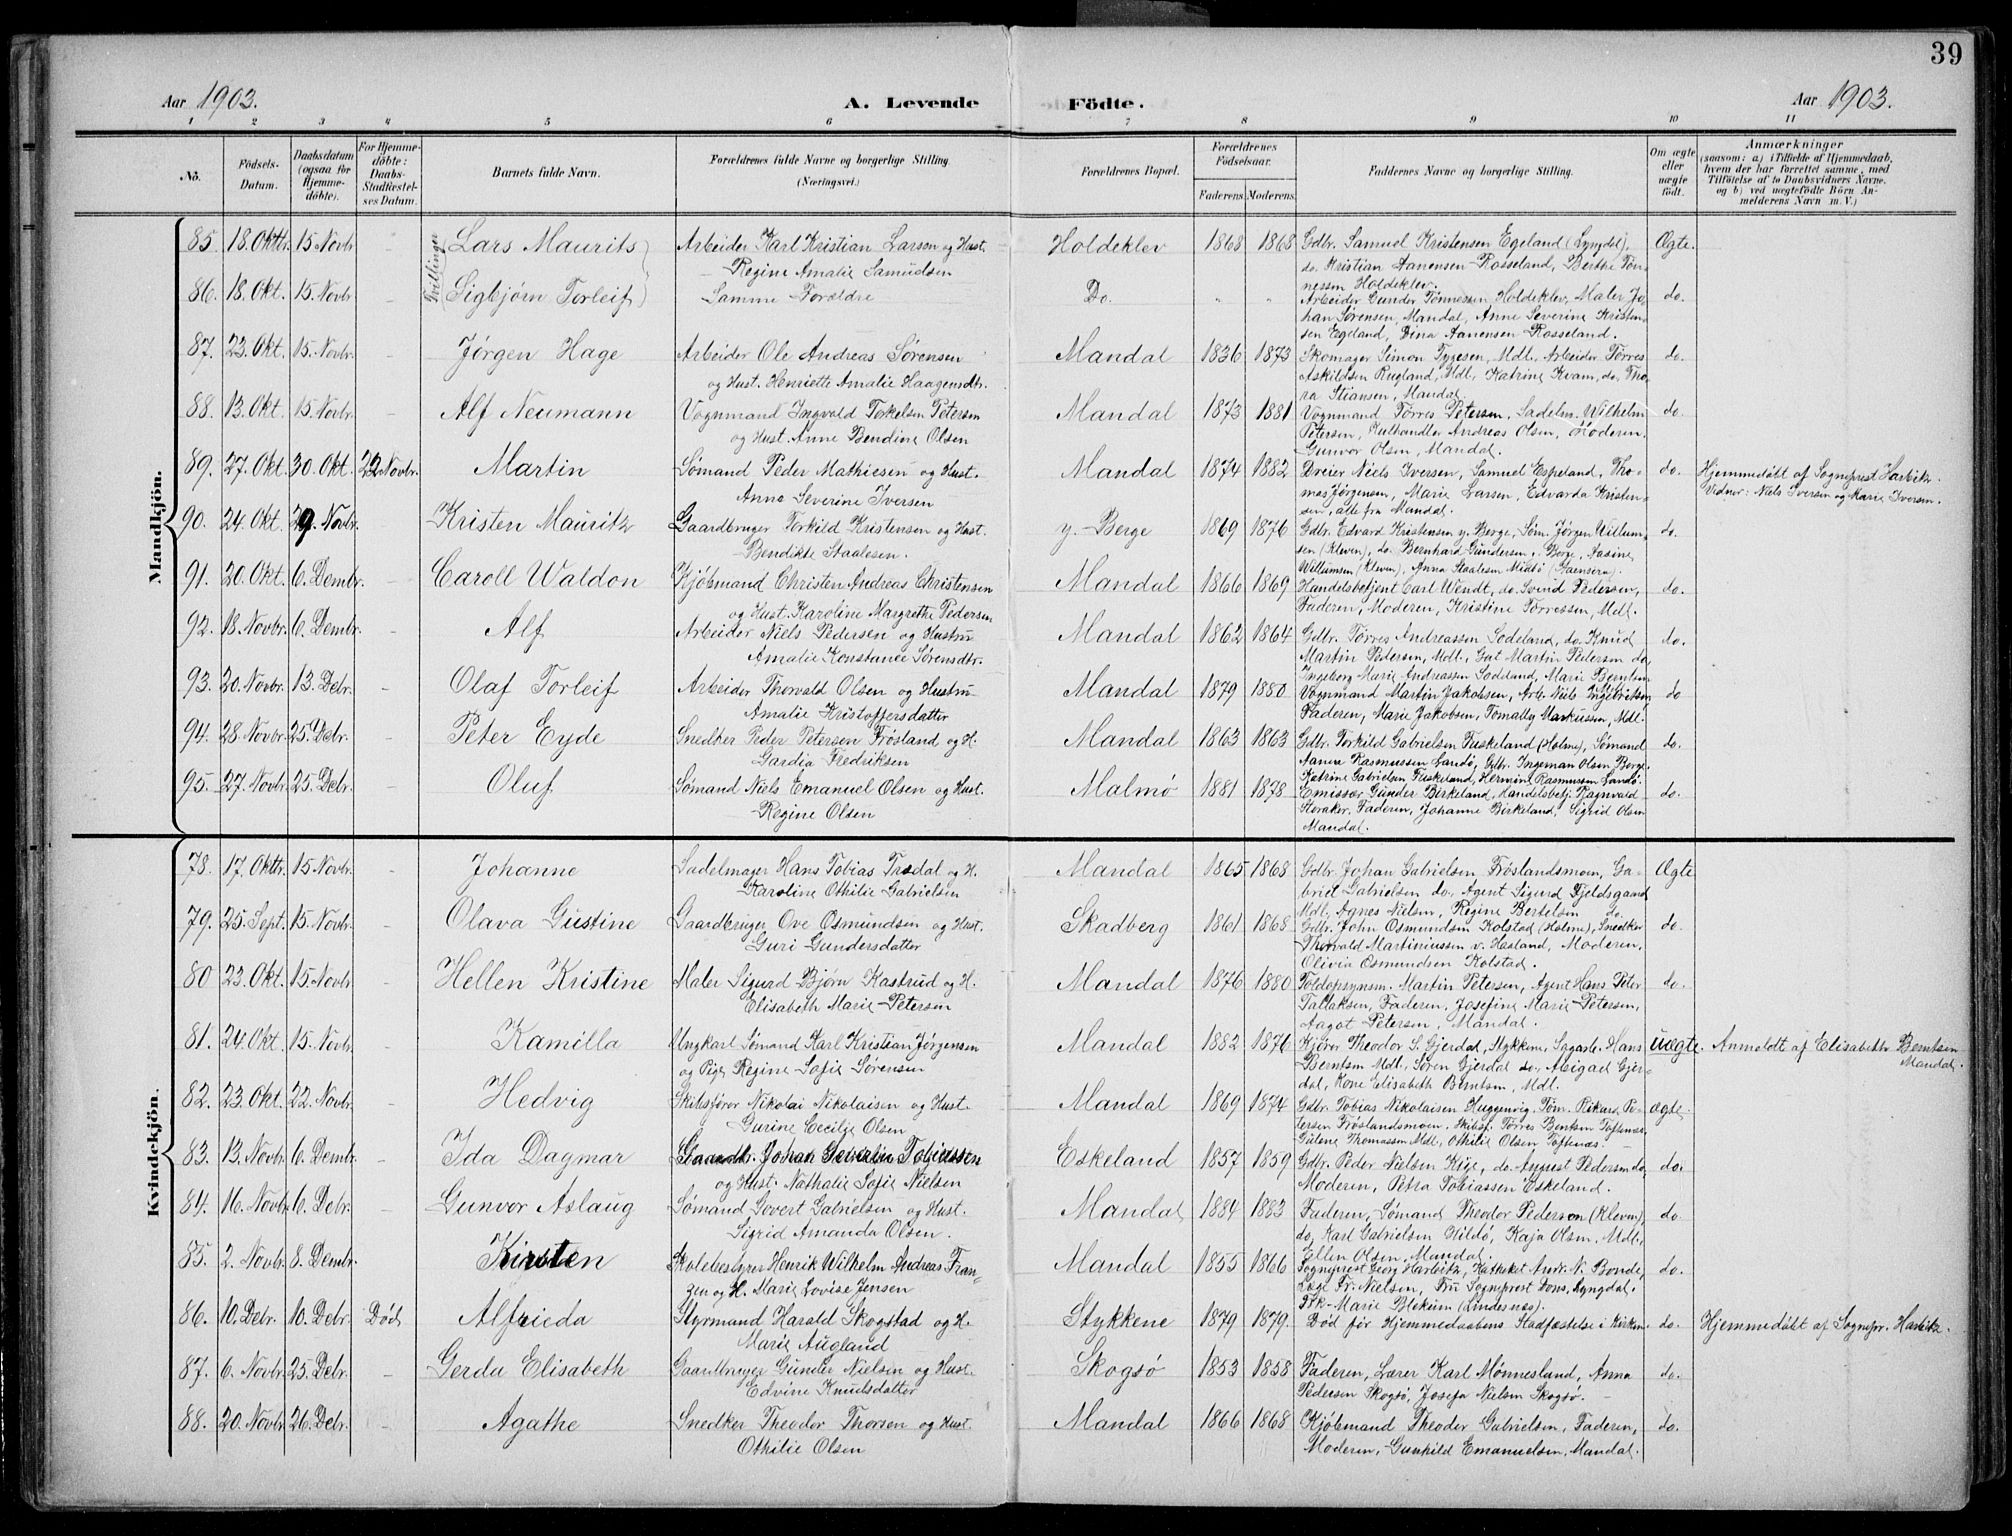 39
Aar 1903. A. Levende Födte. Aar 1903.
1 2 3 4 5 6 7 8 9 10 11
Nö. Födsels-Datum. Daabsdatum (ogsaa for Hjemmedöbte). For Hjemmedöbte: Daabs-Stadfæstelses Datum. Barnets fulde Navn. Forældrenes fulde Navne og borgerlige Stilling. (Næringsvei.) Forældrenes Bopæl. Forældrenes Födselsaar. Faderens Moderens Faddernes Navne og borgerlige Stilling. Om ægte eller uægte födt. Anmærkninger (saasom: a.) i Tilfælde af Hjemmedaab, hvem der har forrettet samme, med Tilföielse af to Daabsvidners Navne, og b) ved uægtefödte Börn Anmelderens Navn m. V.)
Mandkjön.
85. 18. Oktbr. 15 Novbr. Tvillinger Lars Maurits Arbeider Karl Kristian Larsen og Hust. Holdeklev 1868 1868 Gdbr. Samuel Kristensen Egeland (Lyngdal), Ægte.
Regine Amalie Samuelsen do. Kristian Aanensen Rosseland, Berthe Tön-
86. 18. Okt. 15. Novbr. - Sigbjørn Torleif Samme Forældre Do. " " nessen Holdeklev.
Arbeider Gunder Tønnessen Holdeklev, Maler Jo- do.
han Sørensen, Mandal, Anne Severine Kristen-
sen Egeland, Dina Aanensen Rosseland.
87. 23. Okt. 15. Novbr. - Jørgen Hage Arbeider Ole Andreas Sørensen Mandal 1836 1873 Skomager Simon Tygesen, Mdl., Arbeider Tørres do.
og Hust. Henriette Amalie Haagensdtr. Askildsen Rugland, Mdl., Katrine Kvam, do, Tho-
ra Stiansen, Mandal
88. 13. Okt. 15. Novbr. - Alf Neumann Vognmand Ingvald Torkelsen Petersen Mandal 1873 1881 Vognmand Tørres Petersen, Sadelm. Wilhelm do.
og Hust. Anne Bendine Olsen Petersen, Kulhandler Andreas Olsen, Moderen.
Gunvor Olsen, Mandal.
89. 27. Okt. 30. Okt. 22 Novbr. Martin Sømand Peder Mathiesen og Hust. Mandal 1874 1882 Dreier Niels Iversen, Samuel Espeland, Tho- do. Hjemmedøbt af Sogneprest Harbitz.
Anna Severine Iversen mas Jørgensen, Marie Larsen, Edvarda Kristen- Vidner: Niels Iversen og Marie Iversen.
sen, alle fra Mandal.
90. 24. Okt. 29. Novbr. - Kristen Mauritz Gaardbruger Torkild Kristensen og Hust. y. Berge 1869 1876 Gdbr. Edvard Kristensen y. Berge, Søm. Jørgen Willum- do.
Bendikte Staalesen. sen (Kleven), do. Bernhard Gundersen y. Berge, Aasine
Willumsen (Kleven), Anna Staalesen
91. 20. Okt. 6. Dembr. - Caroll Waldon Kjøbmand Christen Andreas Christensen Mandal 1866 1869 Handelsbetjent Carl Wendt, do. Svend Pedersen, do.
og Hust. Karoline Margrethe Pedersen Faderen, Moderen, Kristine Tørressen, Mdl.
92. 18. Novbr. 6. Dembr. - Alf Arbeider Niels Pedersen og Hustru Mandal 1862 1864 Gdbr. Tørres Andreassen Sodeland, do. Knud do.
Amalie Konstance Sørensdtr. Martin Pedersen, Mdl., Martin Pedersen do,
Ingeborg Marie Andreassen Sodeland, Marie Berntsen
93. 20. Novbr. 13. Debr. - Olaf Torleif Arbeider Thorvald Olsen og Hustru Mandal 1879 1880 Vognmand Martin Jakobsen, Arb. Niels Ingebritsen, do
Amalie Kristoffersdatter Faderen, Marie Jakobsen, Markussen, Mdl.
94. 28. Novbr. 25. Debr. - Peter Eyde Snedker Peder Petersen Frøsland og H. Mandal 1863 1863 Gdbr. Torkild Gabrielsen Fuskeland (Holme), Sømand do.
Gardia Fredriksen Aanen Rasmussen Sandø, Gdbr. Ingeman Olsen Berge.
Katrine Gabrielsen Fuskeland, Hermine Rasmussen Sandø.
95. 27. Novbr. 25. Debr. - Oluf Sømand Niels Emanuel Olsen og Hust. Malmø 1881 1878 Emissær Gunder Birkeland, Handelsbetj. Ragnvald do.
Regine Olsen Storaker, Faderen, Johanne Birkeland, Sigrid Olsen
Mandal.
Kvindekjön.
78. 17. Oktbr. 15. Novbr. - Johanne Sadelmager Hans Tobias Trædal og H. Mandal 1865 1868 Gdbr. Johan Gabrielsen Frøslandsmoen, Ga- Ægte
Karoline Othilie Gabrielsen briel Gabrielsen do., Agent Sigurd Fjeldsgaard
Mdl., Agnes Nielsen, Regine Bertelsen do.
79. 25. Sept. 15. Novbr. - Olava Gustine Gaardbruger Ove Osmundsen og Hust. Skadberg 1861 1868 Gdbr. John Osmundsen Kolstad (Holme), Snedker do.
Guri Gundersdatter Thorvald Martiniussen v. Hasland, Moderen,
Olivia Osmundsen Kolstad.
80 23. Okt. 15. Novbr. - Hellen Kristine Maler Sigurd Bjørn Kastrud og H. Mandal 1876 1880 Toldopsynsm. Martin Petersen, Agent Hans Peter do.
Elisabeth Marie Petersen Tallaksen, Faderen, Josefine Marie Petersen,
Aagot Petersen, Mandal.
81. 24. Okt. 15. Novbr. - Kamilla Ungkarl Sømand Karl Kristian Jørgensen Mandal 1882 1876 Kjører Theodor S. Gjerdal, Stykkene, Sagarb. Hans uægte. Anmeldt af Elisabeth Berntsen
og Pige Regine Sofie Sørensen Berntsen Mdl., Søren Gjerdal do, Abigael Gjer- Mandal.
dal, Kone Elisabeth Berntsen, Mdl.
82. 23. Okt. 22. Novbr. - Hedvig Skibsfører Nikolai Nikolaisen og Hust. Mandal 1869 1874 Gdbr. Tobias Nikolaisen Huggenvig, Tøm. Rikard Pe- ægte.
Gurine Cecilie Olsen tersen Frøslandsmoen, Skibsf. Tørres Berntsen Toftenæs,
Gulene Thomassen Mdl., Othilie Olsen Toftenæs.
83. 13. Novbr. 6. Dembr. - Ida Dagmar Gaardbr. Johan Severin Tobiassen Eskeland 1857 1859 Gdbr. Peder Nielsen Kige, do. August Pedersen do, do.
og Hust. Nathalie Sofie Nielsen Moderen, Petra Tobiassen Eskeland.
84. 16. Novbr. 6. Debr. - Gunvor Aslaug Sømand Govert Gabrielsen og Hust. Mandal 1884 1883 Faderen, Sømand Theodor Pedersen (Kleven), do.
Sigrid Amanda Olsen. do, Karl Gabrielsen Hildø, Kaja Olsen, Mdl.,
Ellen Olsen, Mandal
85. 2. Novbr. 8. Dembr. - Kirsten Skolebestyrer Henrik Wilhelm Andreas Fran- Mandal 1855 1866 Sogneprest Georg Harbitz, N. Bonde, do.
zen og H. Marie Lovise Jensen Læge Fr. Nielsen, Fru Sogneprest Lyngdal.
Frk. Marie Blekum (Lindernæs).
86. 10. Debr. 10. Debr. Død Alfrieda Styrmand Harald Skogstad og H. Stykkene 1879 1879. Død før Hjemmedaabens Stadfæstelse i Kirken. do. Hjemmedøbt af Sognepr. Harbitz.
Marie Augland
87. 6. Novbr. 25. Debr. - Gerda Elisabeth Gaardbruger Gunder Nielsen og Hust. Skogsø 1853 1858 Faderen, Lærer Karl Mønnesland, Anna do.
Edvine Knudsdatter Pedersen Skogsø, Josefa Nielsen Skogsø.
88. 20. Novbr. 26. Debr. - Agathe Snedker Theodor Thorsen og Hust. Mandal 1866 1868 Kjøbmand Theodor Gabrielsen, Faderen, do.
Othilie Olsen Moderen, Gunhild Emanuelsen, Mandal.